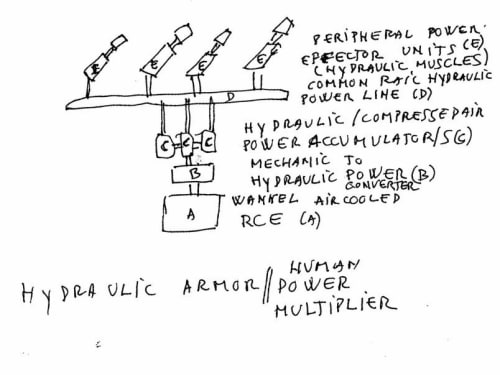 PERIPHERAL POWER
EFFECTOR UNITS (E)
(HYDRAULIC MUSCLES)
COMMON RAIL HYDRAULIC
POWER LINE (D)
E E E E
D
HYDRAULIC/COMPRESSED AIR
POWER ACCUMULATOR/S (C)
C C C
MECHANIC TO
HYDRAULIC POWER (B)
CONVERTER
B
WANKEL AIR COOLED
RCE (A)
A
HYDRAULIC ARMOR // HUMAN
POWER
MULTIPLIER